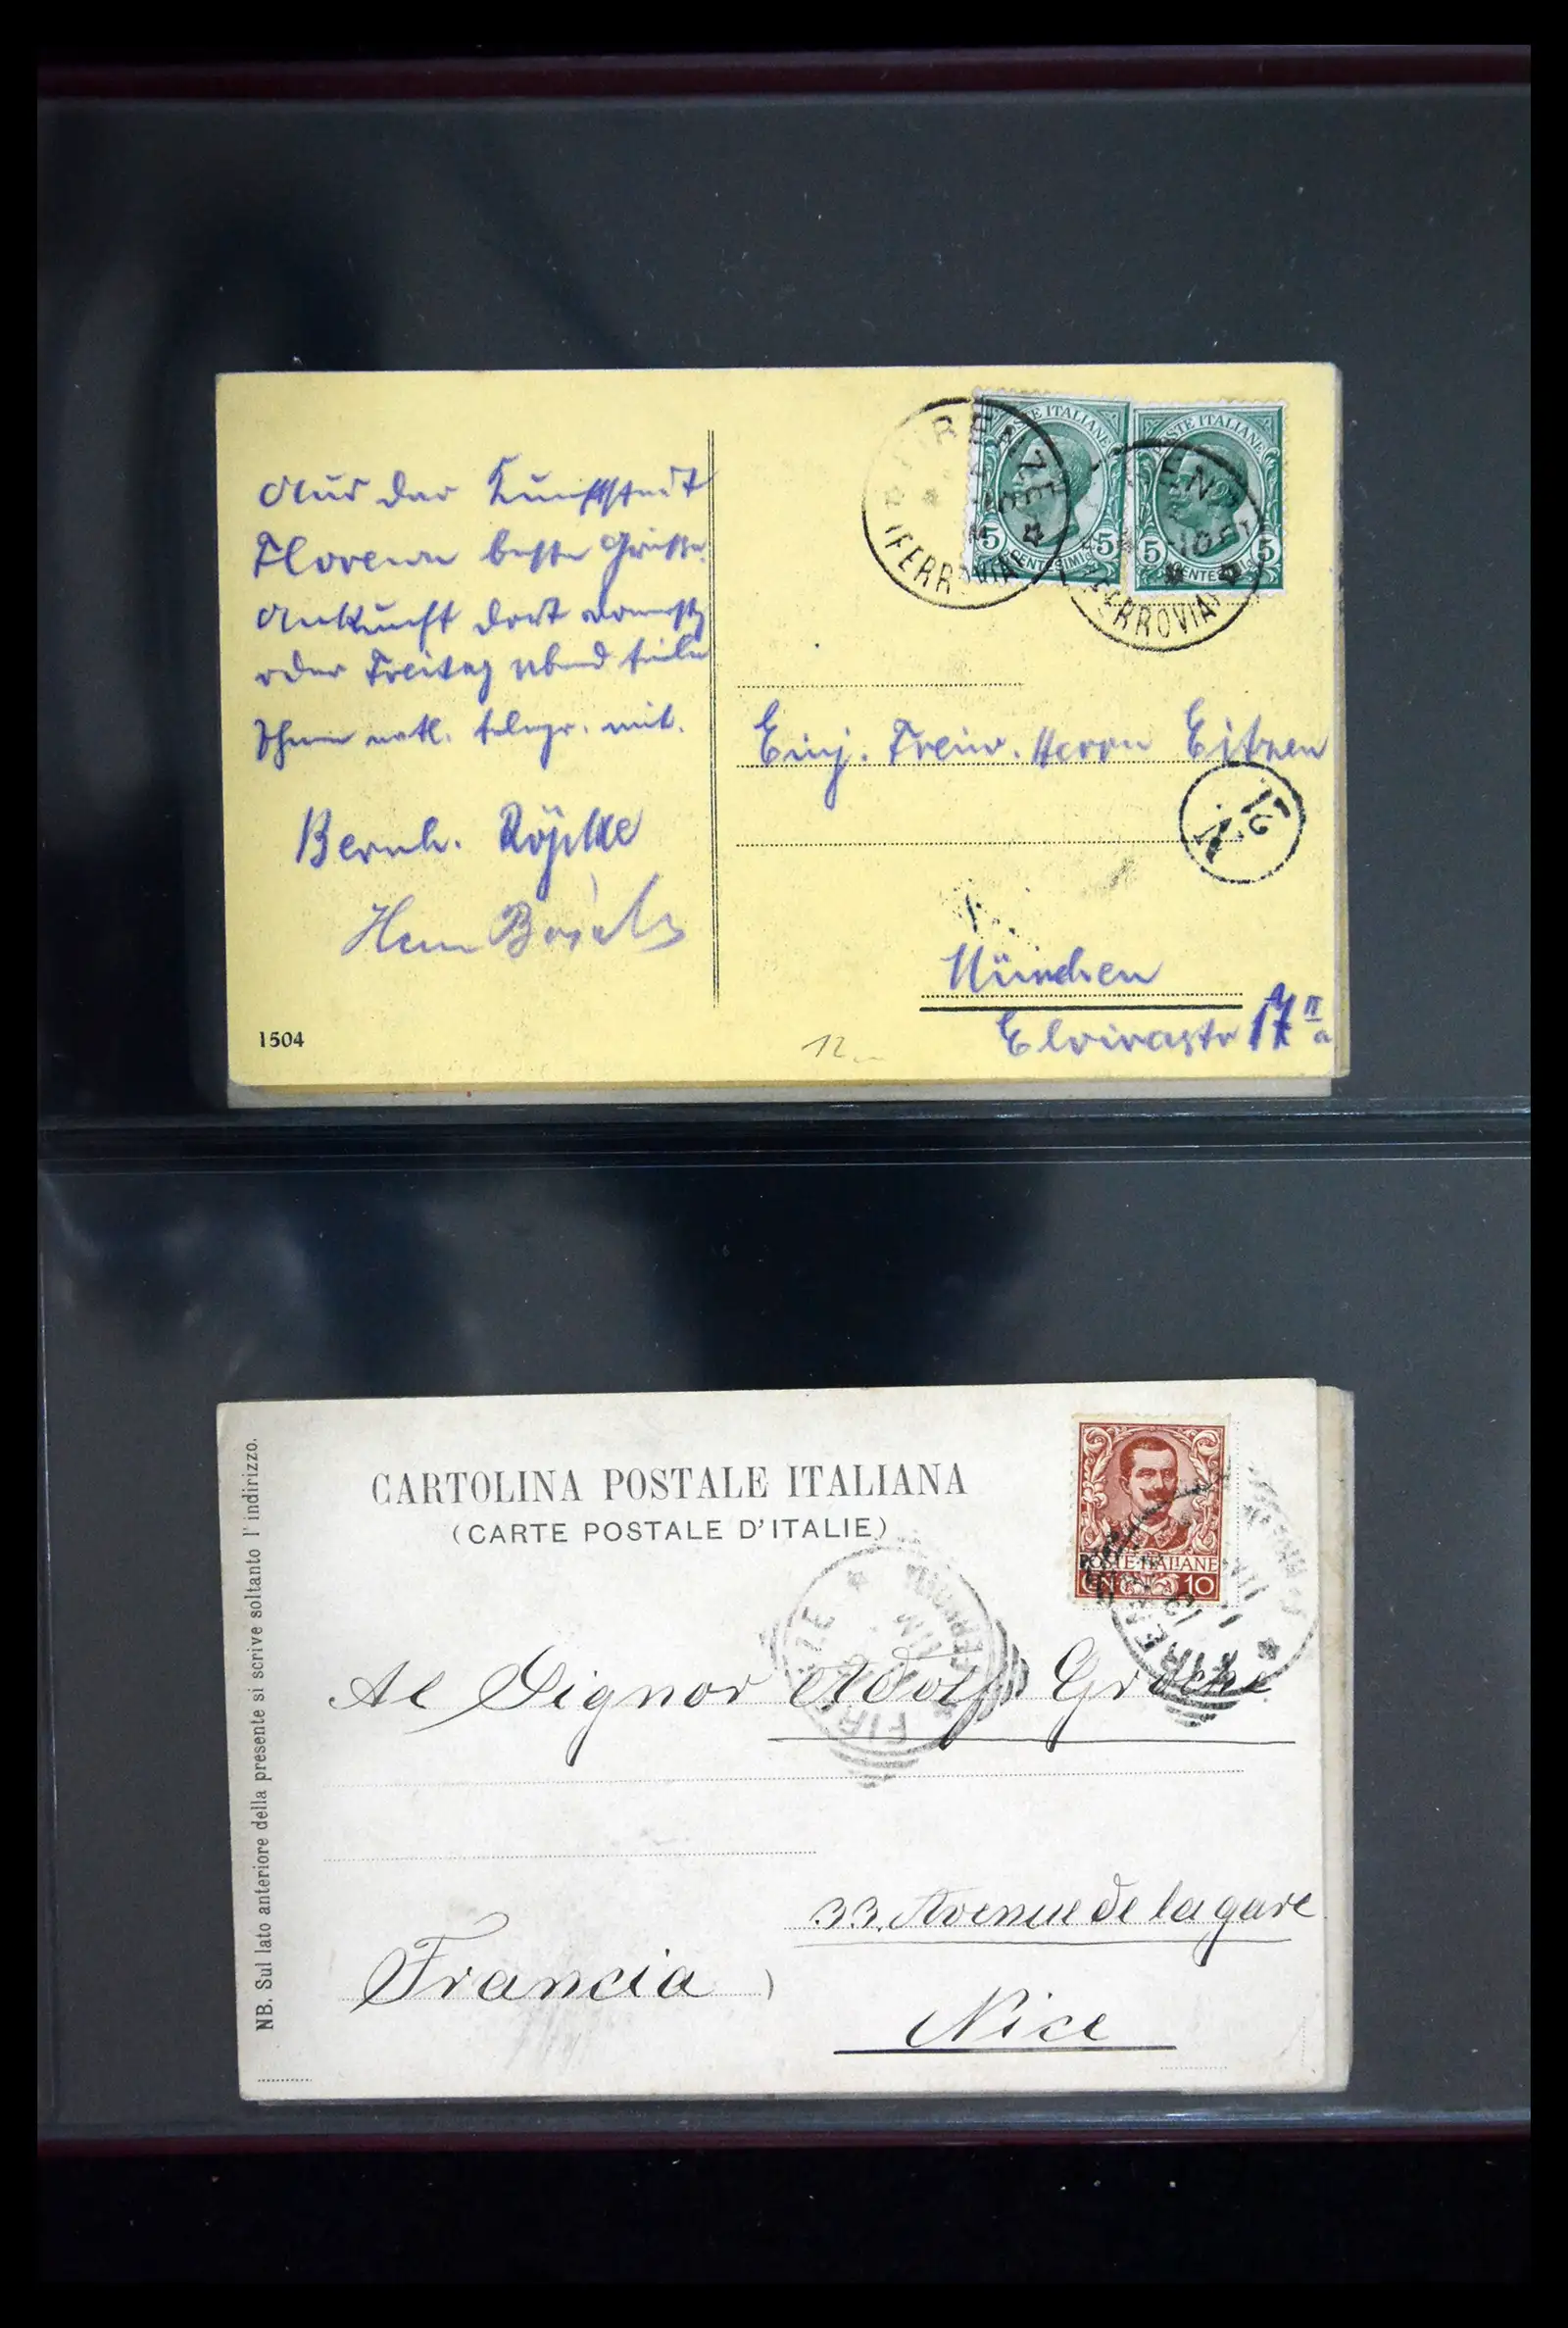 Aus der Kunststadt
Florenz beste Grüsse.
Ankunft dort
oder Freitag abend teile
Ihnen evtl. telegr. mit.
Bernh. Röpke
1504
FIRENZE
(FERROVIA)
POSTE ITALIANE
5 CENTESIMI 5
POSTE ITALIANE
5 CENTESIMI 5
(FERROVIA)
Einj. Freiw. Herrn
München
Elvirastr 17 II
a
12
CARTOLINA POSTALE ITALIANA
(CARTE POSTALE D'ITALIE)
NB. Sul lato anteriore della presente si scrive soltanto l'indirizzo.
POSTE·ITALIANE
CENT. 10
FIRENZE
FERROVIA
FIRENZE
Al Signor Adolf
33. Avenue de la gare
Francia
Nice